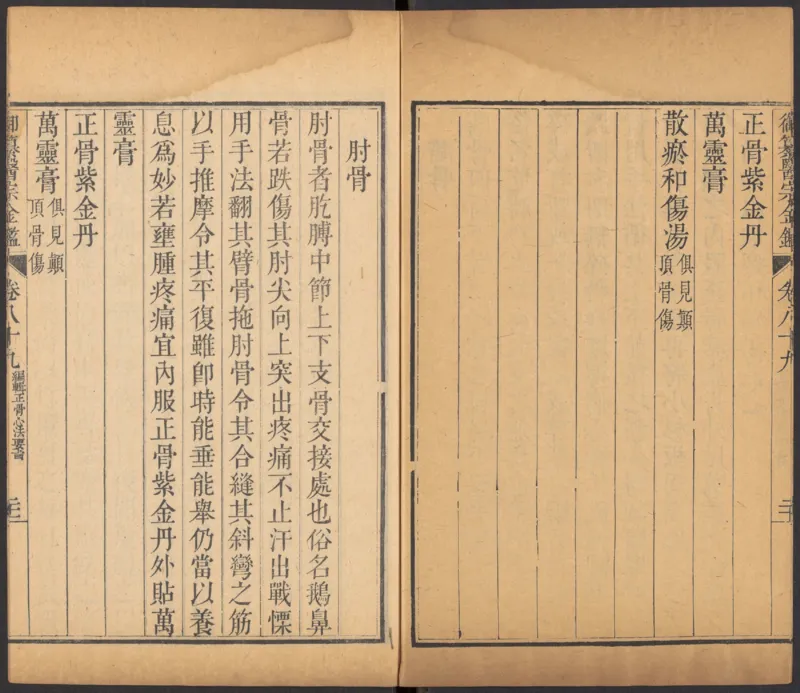 正骨紫金丹
萬靈膏
散瘀和傷湯俱見顚頂骨傷
肘骨
肘骨者胳膊中節上下支骨交接處也俗名鵝鼻
骨若跌傷其肘尖向上突出疼痛不止汗出戰慄
用手法翻其臂骨拖肘骨令其合縫其斜彎之筋
以手推摩令其平復雖卽時能垂能舉仍當以養
息爲妙若壅腫疼痛宜內服正骨紫金丹外貼萬
靈膏
正骨紫金丹
萬靈膏俱見顚頂骨傷
卷八十九 編輯正骨心法要旨